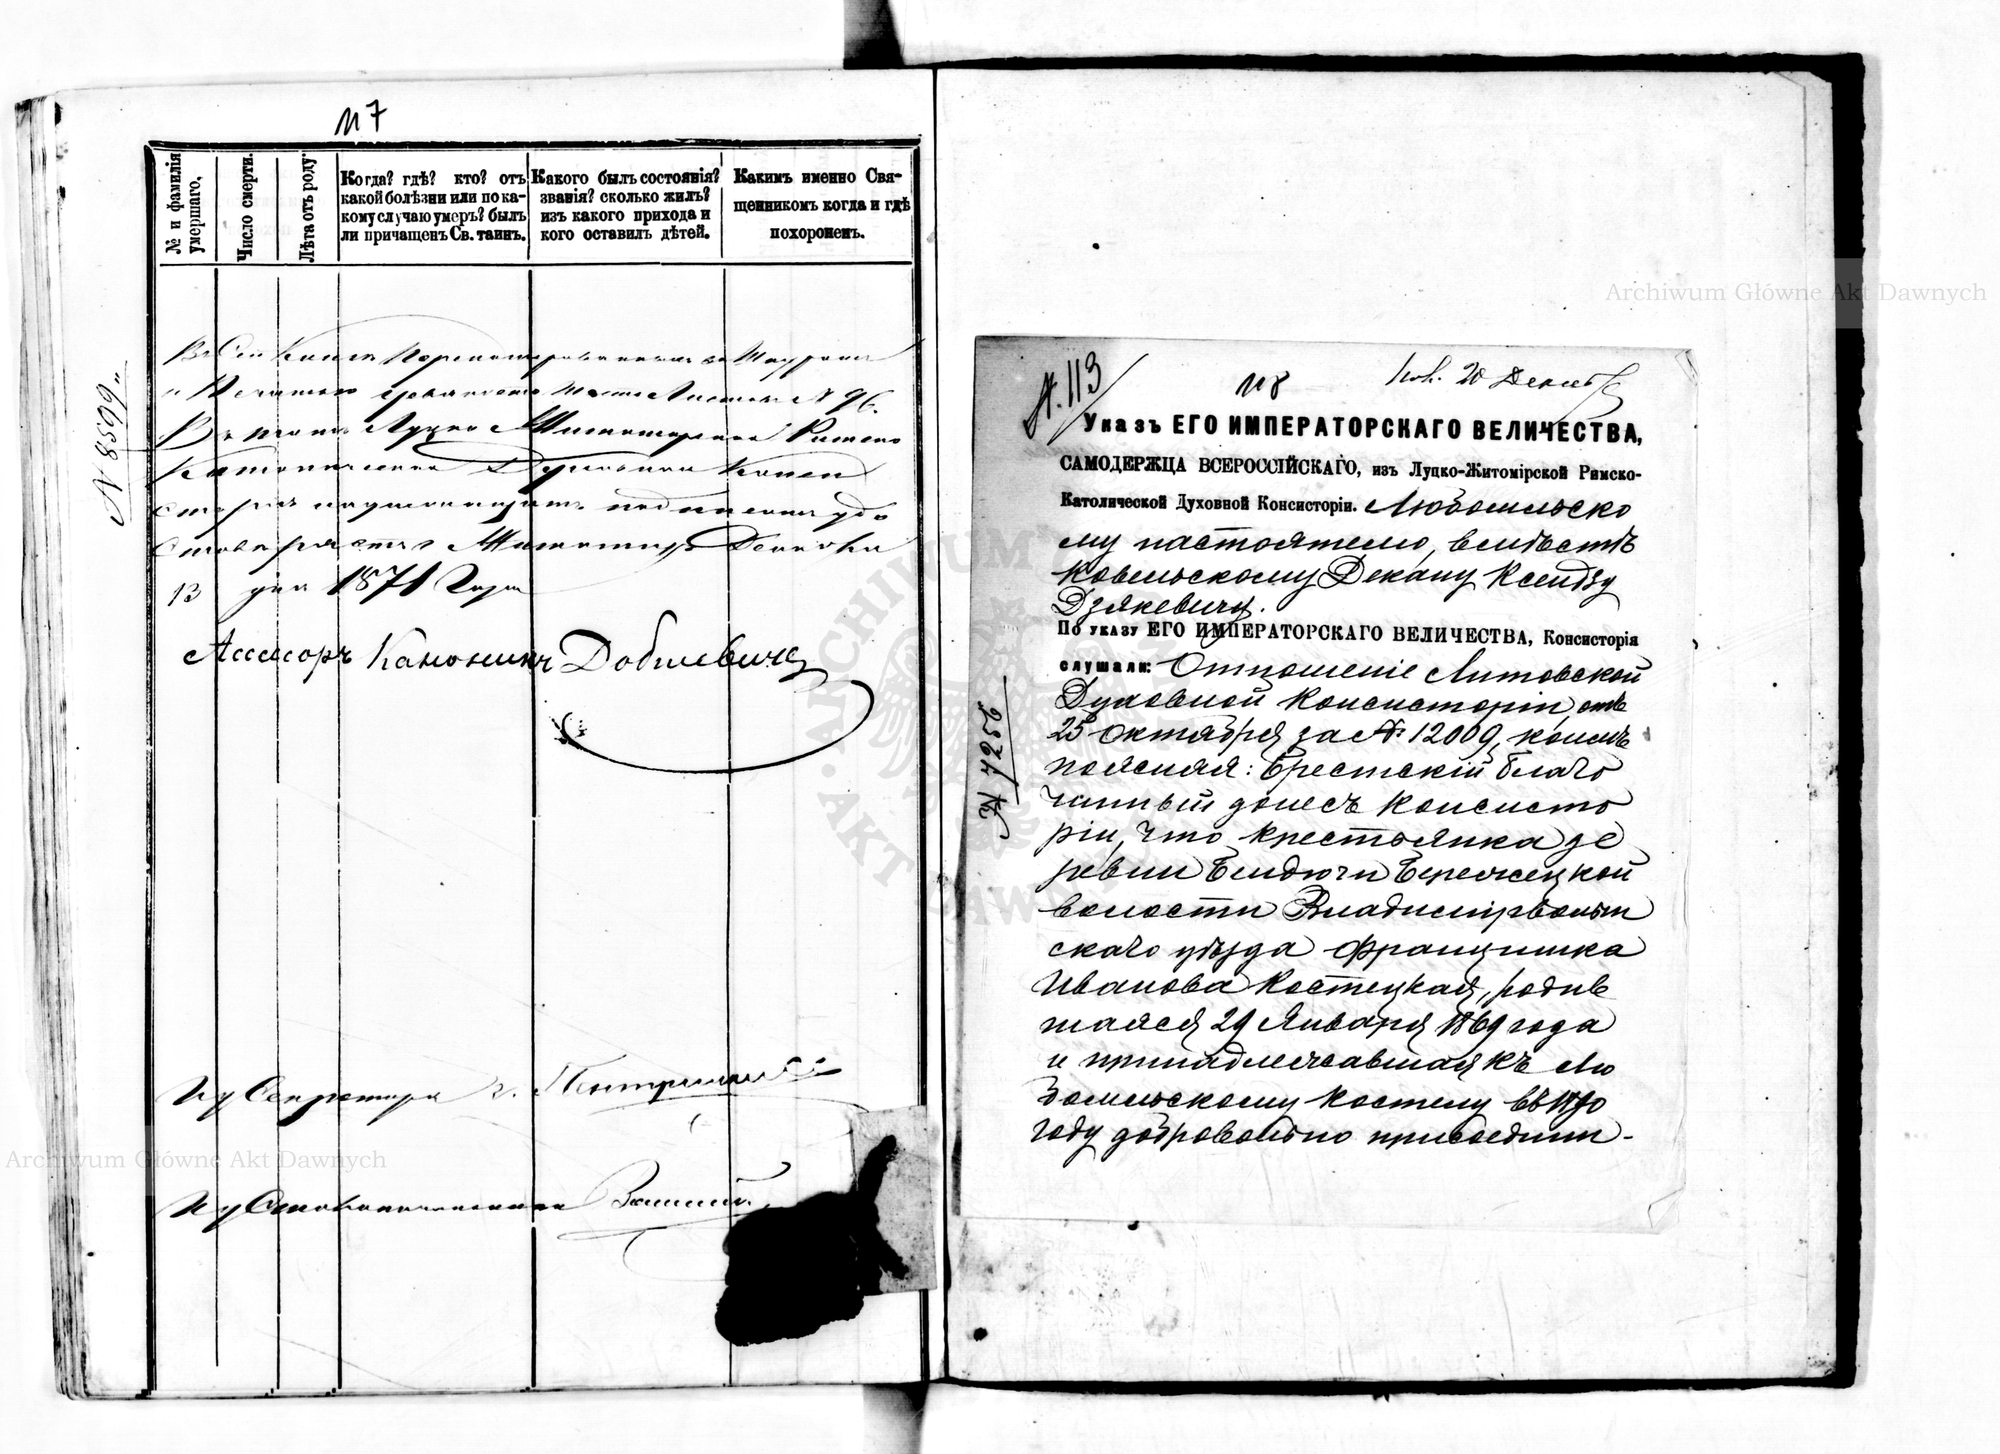 117
№ и фамилія умершаго.
Число смерти.
Лѣта отъ роду.
Когда? гдѣ? кто? отъ
какой болѣзни или по ка-
кому случаю умеръ? былъ
ли причащенъ Св. таинъ.
Какого былъ состоянія?
званія? сколько жилъ?
изъ какого прихода и
кого оставилъ дѣтей.
Какимъ именно Свя-
щенникомъ когда и гдѣ
похороненъ.
N 8599
Въ сей Книгѣ
и Печатью листовъ N 96.
Въ томъ Луцко Житомирская Римско
Католическая Духовная Конси
сторія подписомъ удо
стовѣряетъ Житомиръ Декабря
13 дня 1871 Года
Ассесоръ Каноникъ
И д Секретаря
И д Столоначальника
N. 113
118
Пол. 20 Декаб
Указъ ЕГО ИМПЕРАТОРСКАГО ВЕЛИЧЕСТВА,
САМОДЕРЖЦА ВСЕРОССІЙСКАГО, изъ Луцко-Житомірской Римско-
Католической Духовной Консисторіи. Любомльско
му настоятелю, вмѣстѣ
Ковельскому Декану Ксендзу
Дзякевичу.
По указу ЕГО ИМПЕРАТОРСКАГО ВЕЛИЧЕСТВА, Консисторія
слушали: Отношеніе Литовской
Духовной Консисторіи, отъ
25 Октября за № 12009, коимъ
поясняя: Брестскій благо
чинный донесъ Консисто
ріи, что крестьянка де
ревни Бендюги Бережецкой
волости Владимірволын
скаго уѣзда Францишка
Иванова Костецкая, родив
шаяся 29 Января 1869 года
и принадлежавшая къ Лю
бомльскому костелу въ 1890
году добровольно присоедин-
№ 7256
Archiwum Główne Akt Dawnych
Archiwum Główne Akt Dawnych